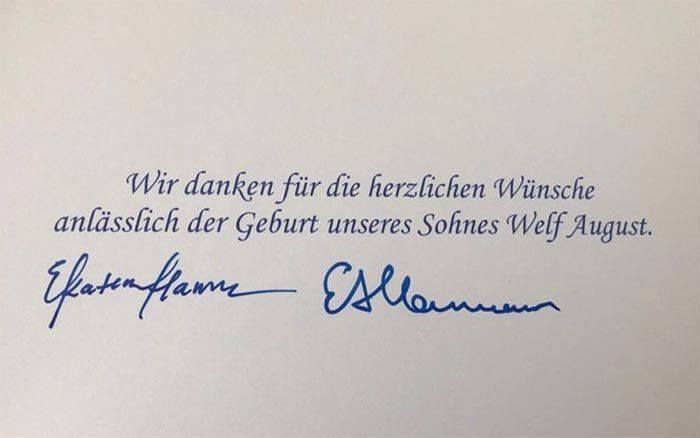 Wir danken für die herzlichen Wünsche
anlässlich der Geburt unseres Sohnes Welf August.